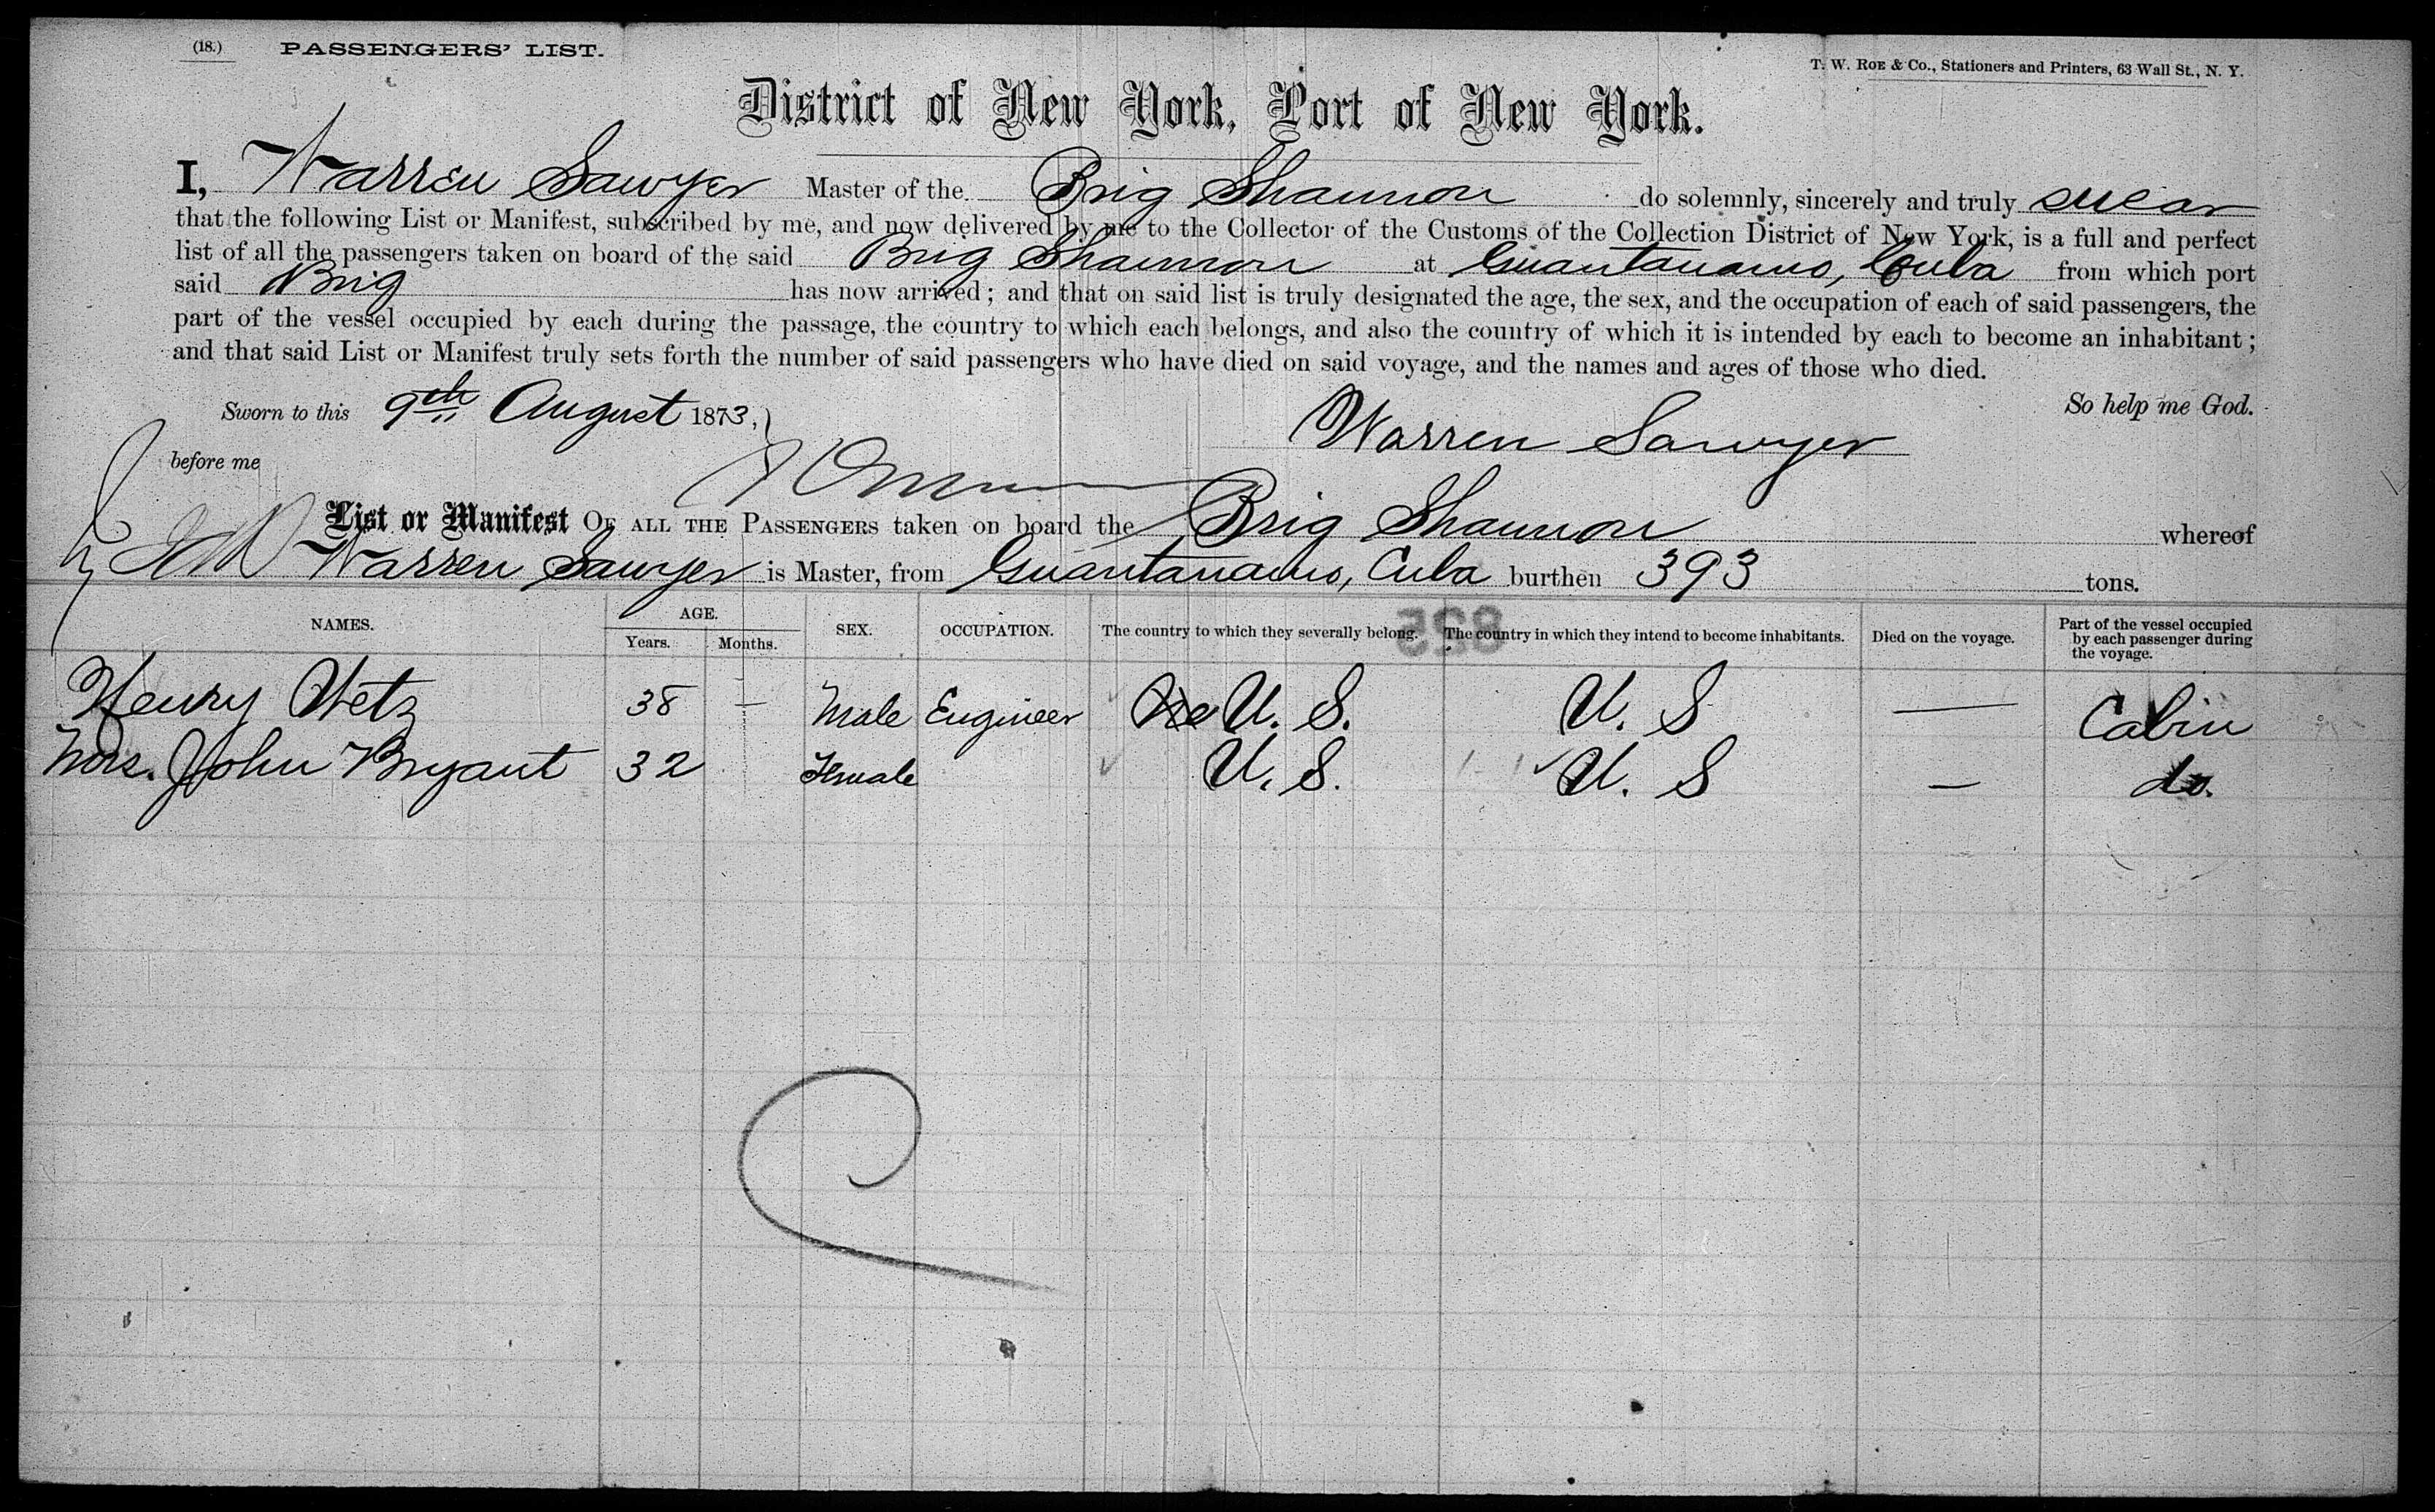 (18.) PASSENGERS' LIST.
T. W. ROE & Co., Stationers and Printers, 63 Wall St., N. Y.
District of New York, Port of New York.
I, Warren Sawyer Master of the Brig Shannon do solemnly, sincerely and truly swear
that the following List or Manifest, subscribed by me, and now delivered by me to the Collector of the Customs of the Collection District of New York, is a full and perfect
list of all the passengers taken on board of the said Brig Shannon at Guantanamo, Cuba from which port
said Brig has now arrived; and that on said list is truly designated the age, the sex, and the occupation of each of said passengers, the
part of the vessel occupied by each during the passage, the country to which each belongs, and also the country of which it is intended by each to become an inhabitant;
and that said List or Manifest truly sets forth the number of said passengers who have died on said voyage, and the names and ages of those who died.
Sworn to this 9th August 1873, So help me God.
Warren Sawyer
before me
List or Manifest OF ALL THE PASSENGERS taken on board the Brig Shannon whereof
Warren Sawyer is Master, from Guantanamo, Cuba burthen 393 tons.
NAMES. AGE. Years. Months. SEX. OCCUPATION. The country to which they severally belong. The country in which they intend to become inhabitants. Died on the voyage. Part of the vessel occupied by each passenger during the voyage.
Henry 38 — Male Engineer U. S. U. S — Cabin
Mrs. John Bryant 32 Female U. S. U. S — do.